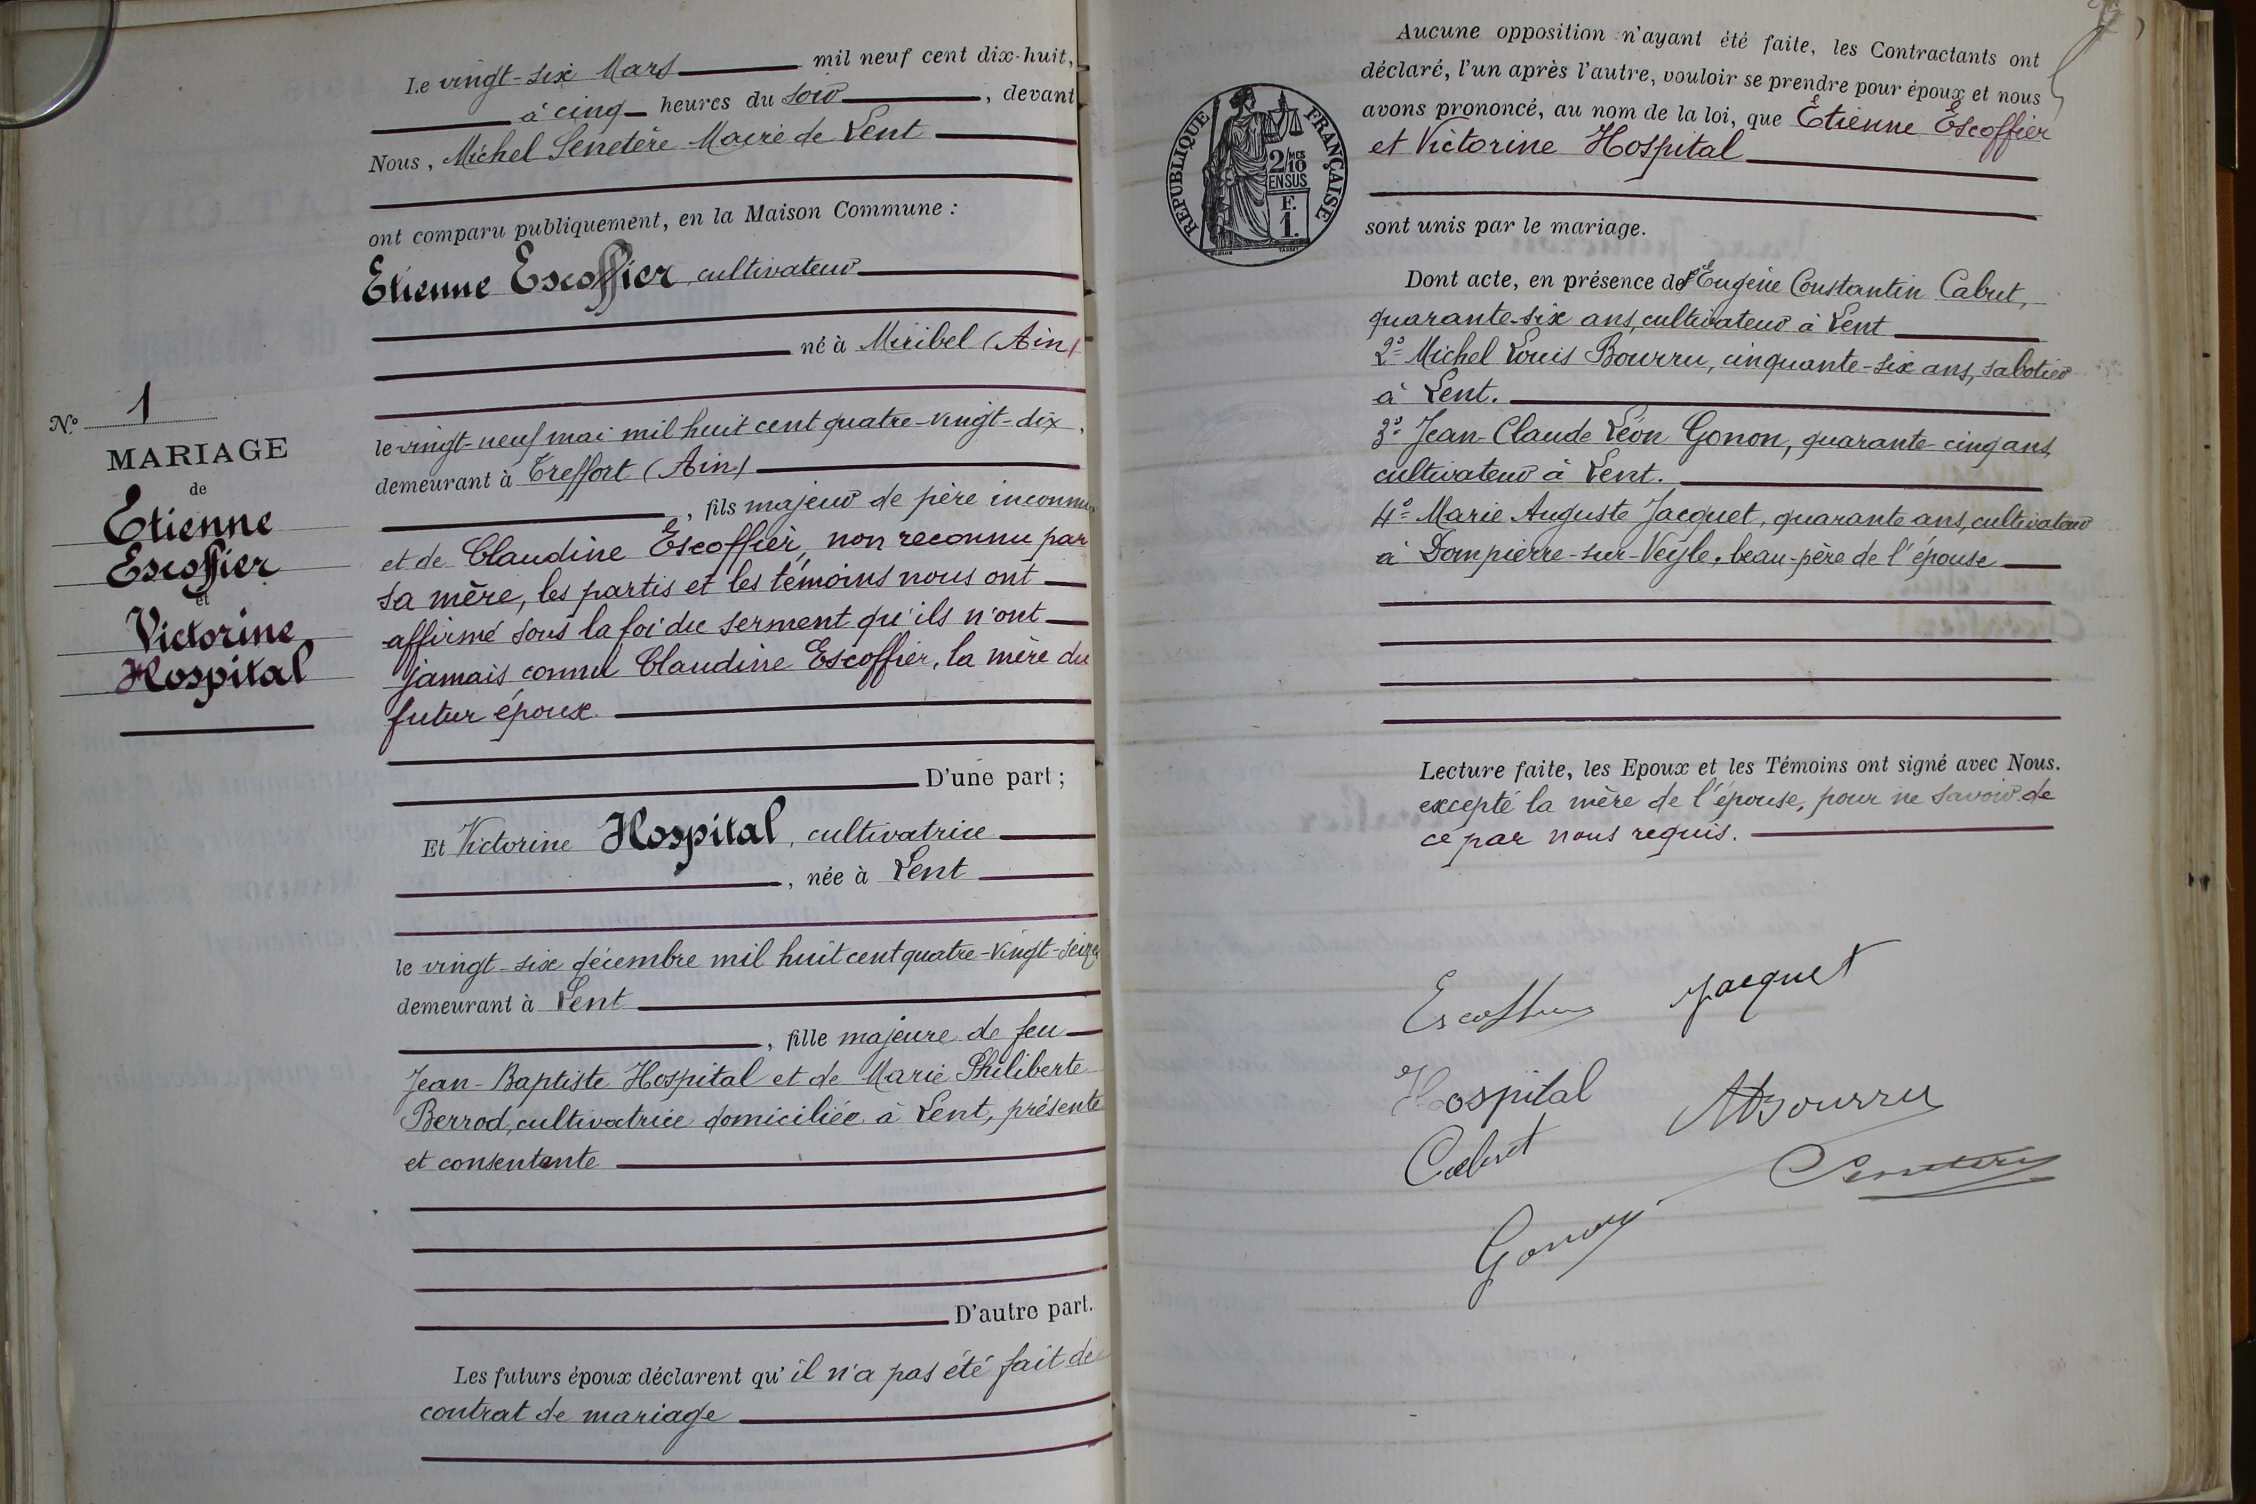 N.º 1
MARIAGE
de
Etienne
Escoffier
et
Victorine
Hospital
Le vingt-six Mars mil neuf cent dix-huit,
à cinq heures du soir, devant
Nous, Michel Senetère Maire de Lent
ont comparu publiquement, en la Maison Commune :
Etienne Escoffier, cultivateur
né à Miribel (Ain)
le vingt-neuf mai mil huit cent quatre-vingt-dix,
demeurant à Treffort (Ain)
, fils majeur de père inconnu
et de Claudine Escoffier, non reconnu par
sa mère, les partis et les témoins nous ont
affirmé sous la foi du serment qu'ils n'ont
jamais connu Claudine Escoffier, la mère du
futur époux.
D'une part ;
Et Victorine Hospital, cultivatrice
, née à Lent
le vingt-six décembre mil huit cent quatre-vingt-seize
demeurant à Lent
, fille majeure de feu
Jean-Baptiste Hospital et de Marie Philiberte
Berrod, cultivatrice domiciliée à Lent, présente
et consentante
D'autre part.
Les futurs époux déclarent qu'il n'a pas été fait de
contrat de mariage
Aucune opposition n'ayant été faite, les Contractants ont
déclaré, l'un après l'autre, vouloir se prendre pour époux et nous
avons prononcé, au nom de la loi, que Etienne Escoffier
et Victorine Hospital
REPUBLIQUE FRANÇAISE
2/10 MES
EN SUS
F.
1.
sont unis par le mariage.
Dont acte, en présence de 1º Eugène Constantin Cabut,
quarante-six ans, cultivateur à Lent
2º Michel Louis Bourru, cinquante-six ans, sabotier
à Lent.
3º Jean-Claude Léon Gonon, quarante-cinq ans,
cultivateur à Lent.
4º Marie Auguste Jacquet, quarante ans, cultivateur
à Dompierre-sur-Veyle, beau-père de l'épouse
Lecture faite, les Epoux et les Témoins ont signé avec Nous.
excepté la mère de l'épouse, pour ne savoir de
ce par nous requis.
Escoffier Jacquet
Hospital MBourru
Cabut Senetère
Gonon